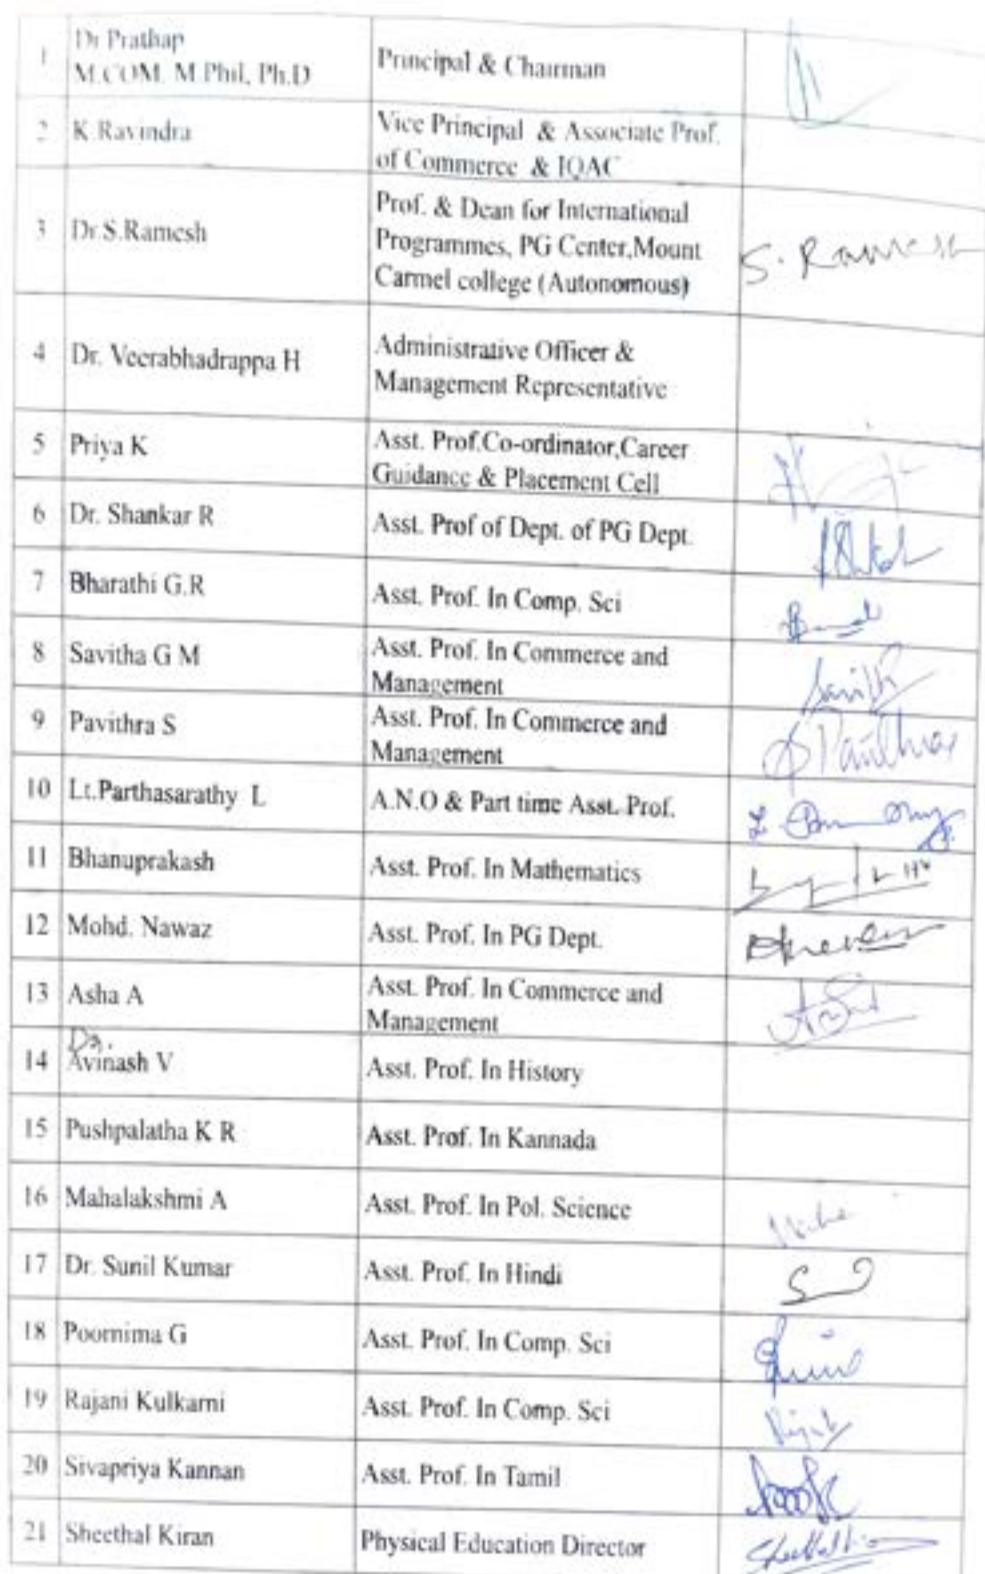 1 Dr Prathap
M.COM. M.Phil, Ph.D
Principal & Chairman
2 K.Ravindra
Vice Principal & Associate Prof.
of Commerce & IQAC
3 Dr.S.Ramesh
Prof. & Dean for International
Programmes, PG Center,Mount
Carmel college (Autonomous)
S. Ramesh
4 Dr. Veerabhadrappa H
Administrative Officer &
Management Representative
5 Priya K
Asst. Prof.Co-ordinator,Career
Guidance & Placement Cell
6 Dr. Shankar R
Asst. Prof of Dept. of PG Dept.
7 Bharathi G.R
Asst. Prof. In Comp. Sci
8 Savitha G M
Asst. Prof. In Commerce and
Management
9 Pavithra S
Asst. Prof. In Commerce and
Management
10 Lt.Parthasarathy L
A.N.O & Part time Asst. Prof.
11 Bhanuprakash
Asst. Prof. In Mathematics
12 Mohd. Nawaz
Asst. Prof. In PG Dept.
13 Asha A
Asst. Prof. In Commerce and
Management
Dr.
14 Avinash V
Asst. Prof. In History
15 Pushpalatha K R
Asst. Prof. In Kannada
16 Mahalakshmi A
Asst. Prof. In Pol. Science
17 Dr. Sunil Kumar
Asst. Prof. In Hindi
18 Poornima G
Asst. Prof. In Comp. Sci
19 Rajani Kulkarni
Asst. Prof. In Comp. Sci
20 Sivapriya Kannan
Asst. Prof. In Tamil
21 Sheethal Kiran
Physical Education Director